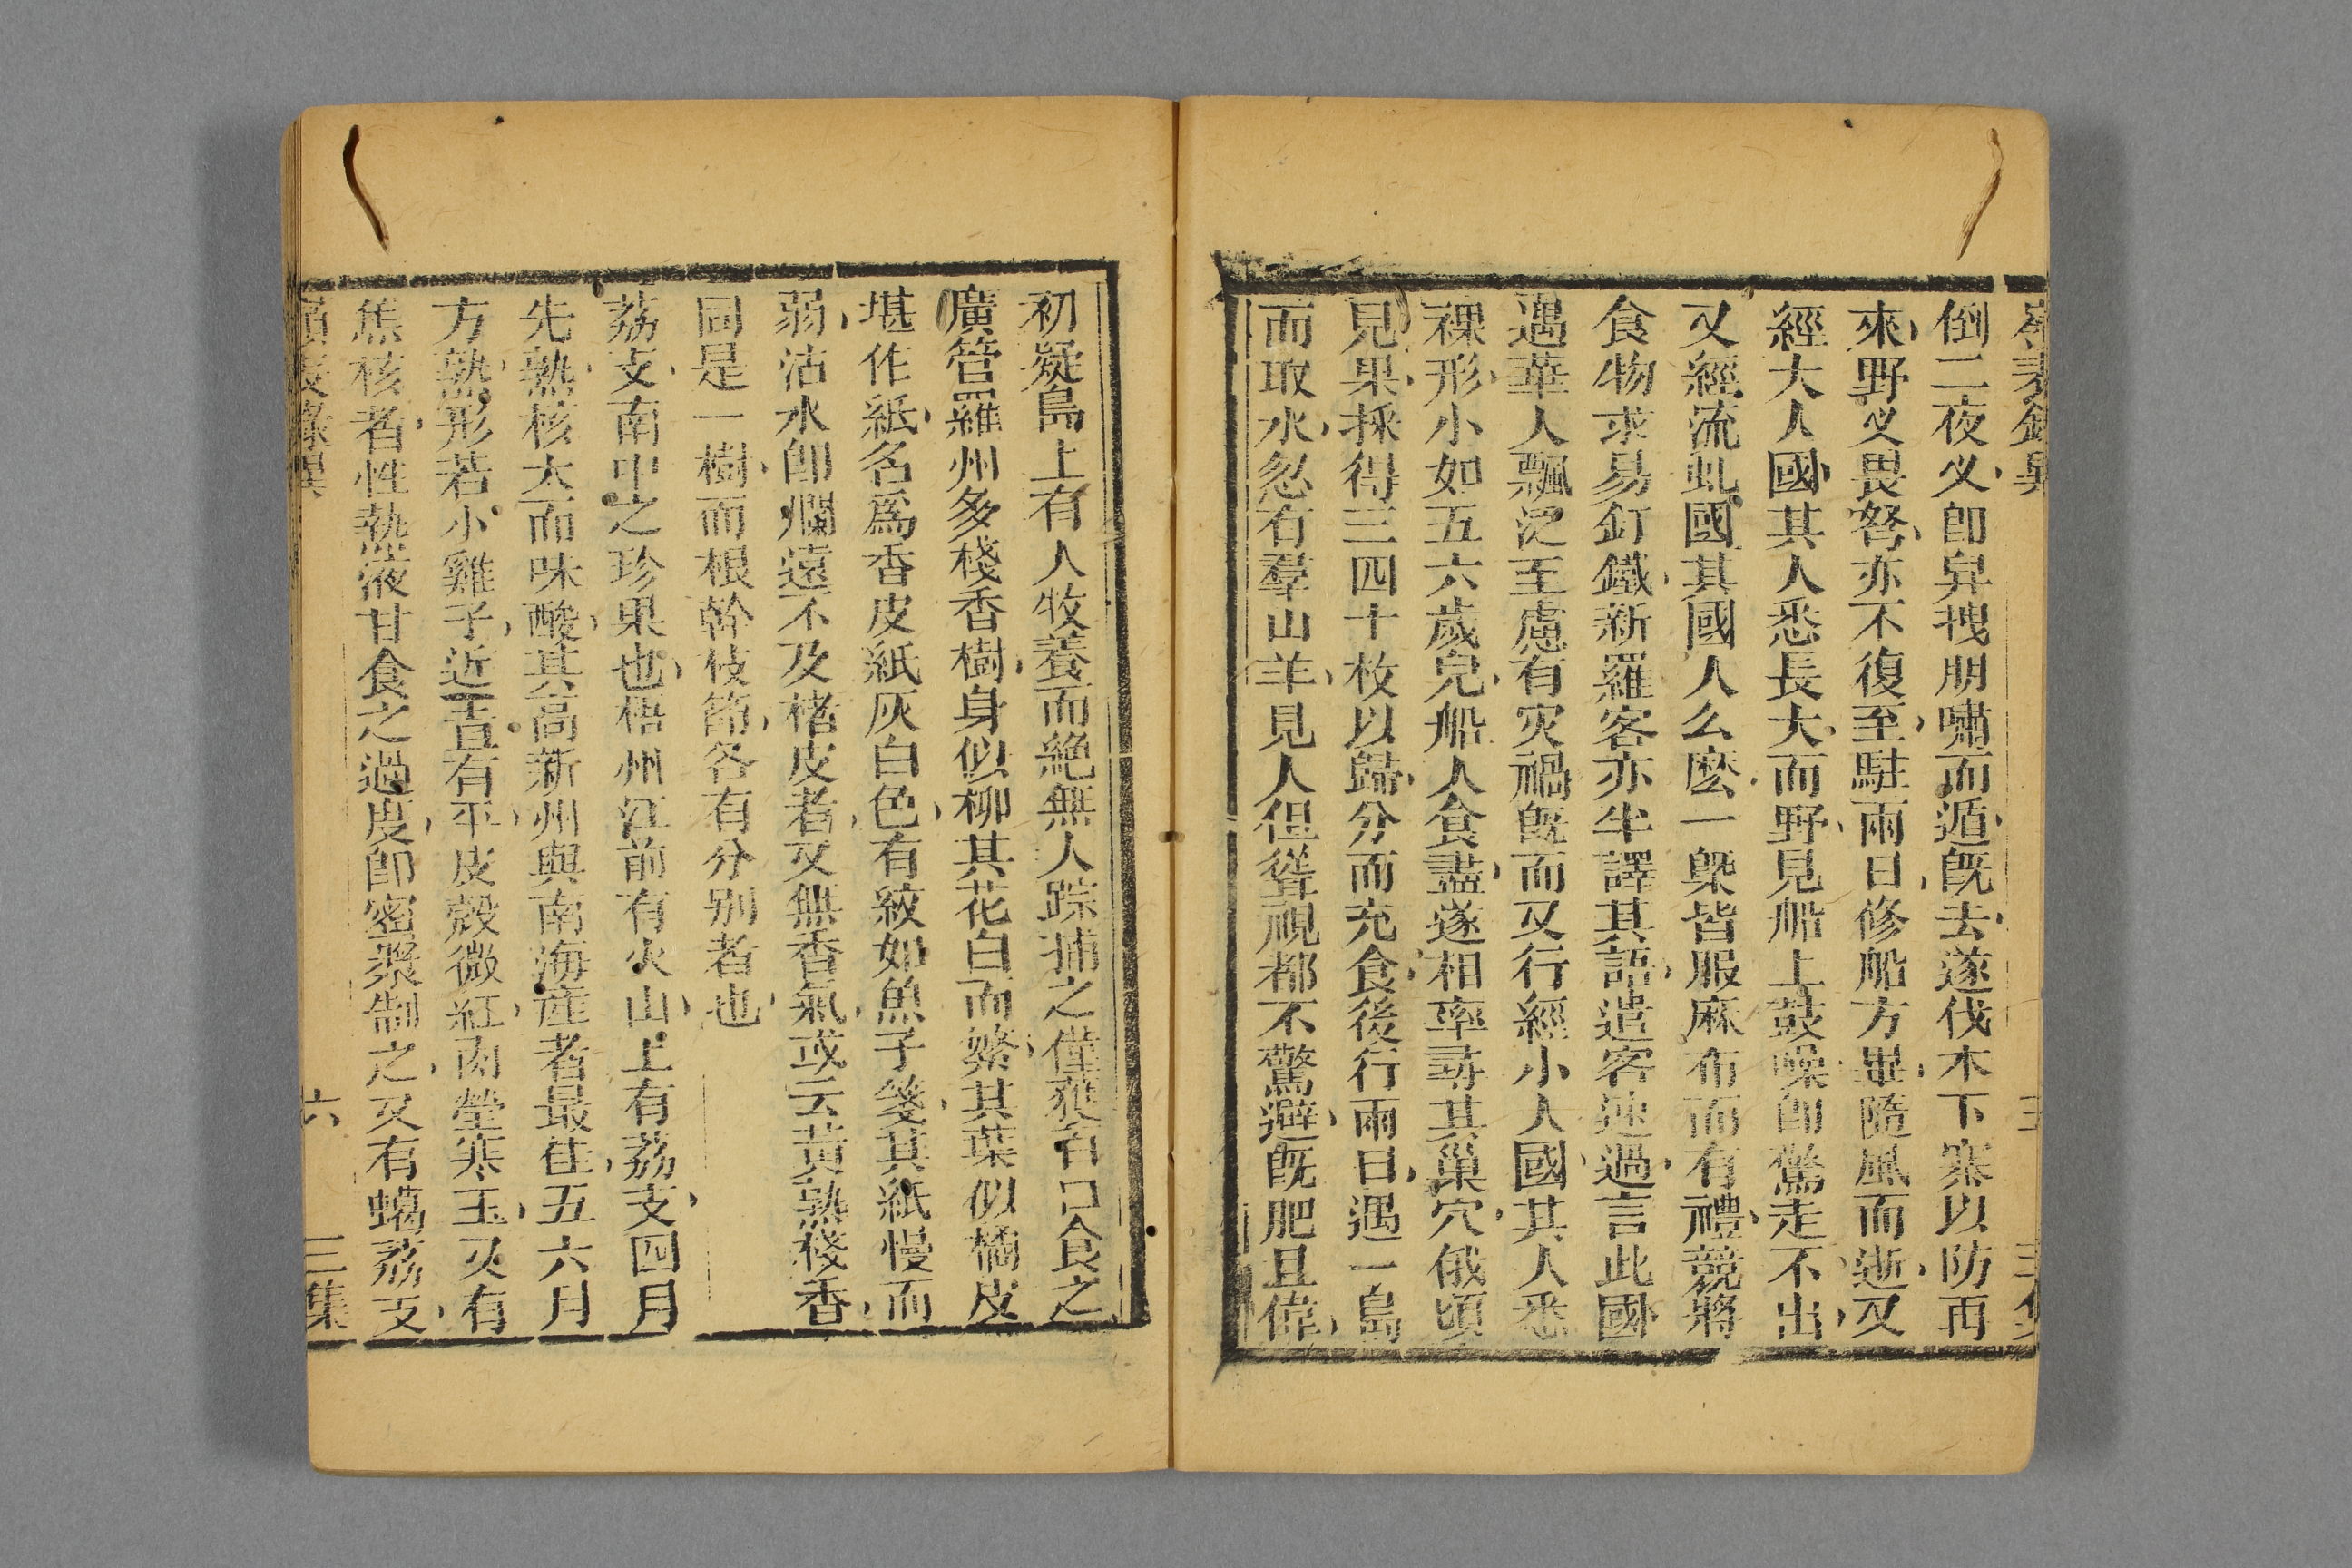 嶺表錄異
五
三集
倒二夜乂卽舁拽朋嘯而遁旣去遂伐木下寒以防再
來野乂畏弩亦不復至駐兩日修船方畢隨風而逝又
經大人國其人悉長大而野見船上鼓噪卽驚走不出
又經流虬國其國人么麽一槩皆服麻布而有禮競將
食物求易釘鐵新羅客亦半譯其語遣客速過言此國
遇華人飄泛至慮有灾禍旣而又行經小人國其人悉
裸形小如五六歲兒船人食盡遂相率尋其巢穴俄頃
見果採得三四十枚以歸分而充食後行兩日遇一島
而取水忽有羣山羊見人但聳視都不驚避旣肥且偉
初疑島上有人牧養而絶無人踪捕之僅獲百口食之
廣管羅州多棧香樹身似柳其花白而繁其葉似橘皮
堪作紙名爲香皮紙灰白色有紋如魚子箋其紙慢而
弱沾水卽爛遠不及楮皮者又無香氣或云黃熟棧香
同是一樹而根幹枝節各有分别者也
荔支南中之珍果也梧州江前有火山上有荔支四月
先熟核大而味酸其高新州與南海產者最佳五六月
方熟形若小雞子近蔕有平皮殼微紅肉瑩寒玉又有
焦核者性熱液甘食之過度卽蜜漿制之又有蠟荔支
嶺表錄異
六
三集